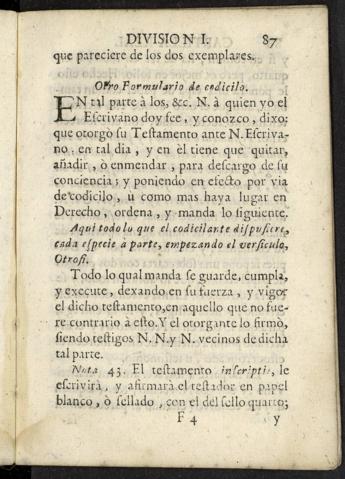 DIVISION I. 87
que pareciere de los dos exemplares.
Otro Formulario de codicilo.
EN tal parte à los, &c. N. à quien yo el
Escrivano doy fee, y conozco, dixo:
que otorgò su Testamento ante N. Escriva-
no, en tal dia, y en èl tiene que quitar,
añadir, ò enmendar, para descargo de su
conciencia; y poniendo en efecto por via
de codicilo, ù como mas haya lugar en
Derecho, ordena, y manda lo siguiente.
Aqui todo lo que el codicilante dispusiere,
cada especie à parte, empezando el versiculo,
Otrosi.
Todo lo qual manda se guarde, cumpla,
y execute, dexando en su fuerza, y vigor
el dicho testamento, en aquello que no fue-
re contrario à esto. Y el otorgante lo firmò,
siendo testigos N. N. y N. vecinos de dicha
tal parte.
Nota 43. El testamento inscriptis, le
escrivirà, y afirmarà el testador en papel
blanco, ò sellado, con el del sello quarto;
F 4 y